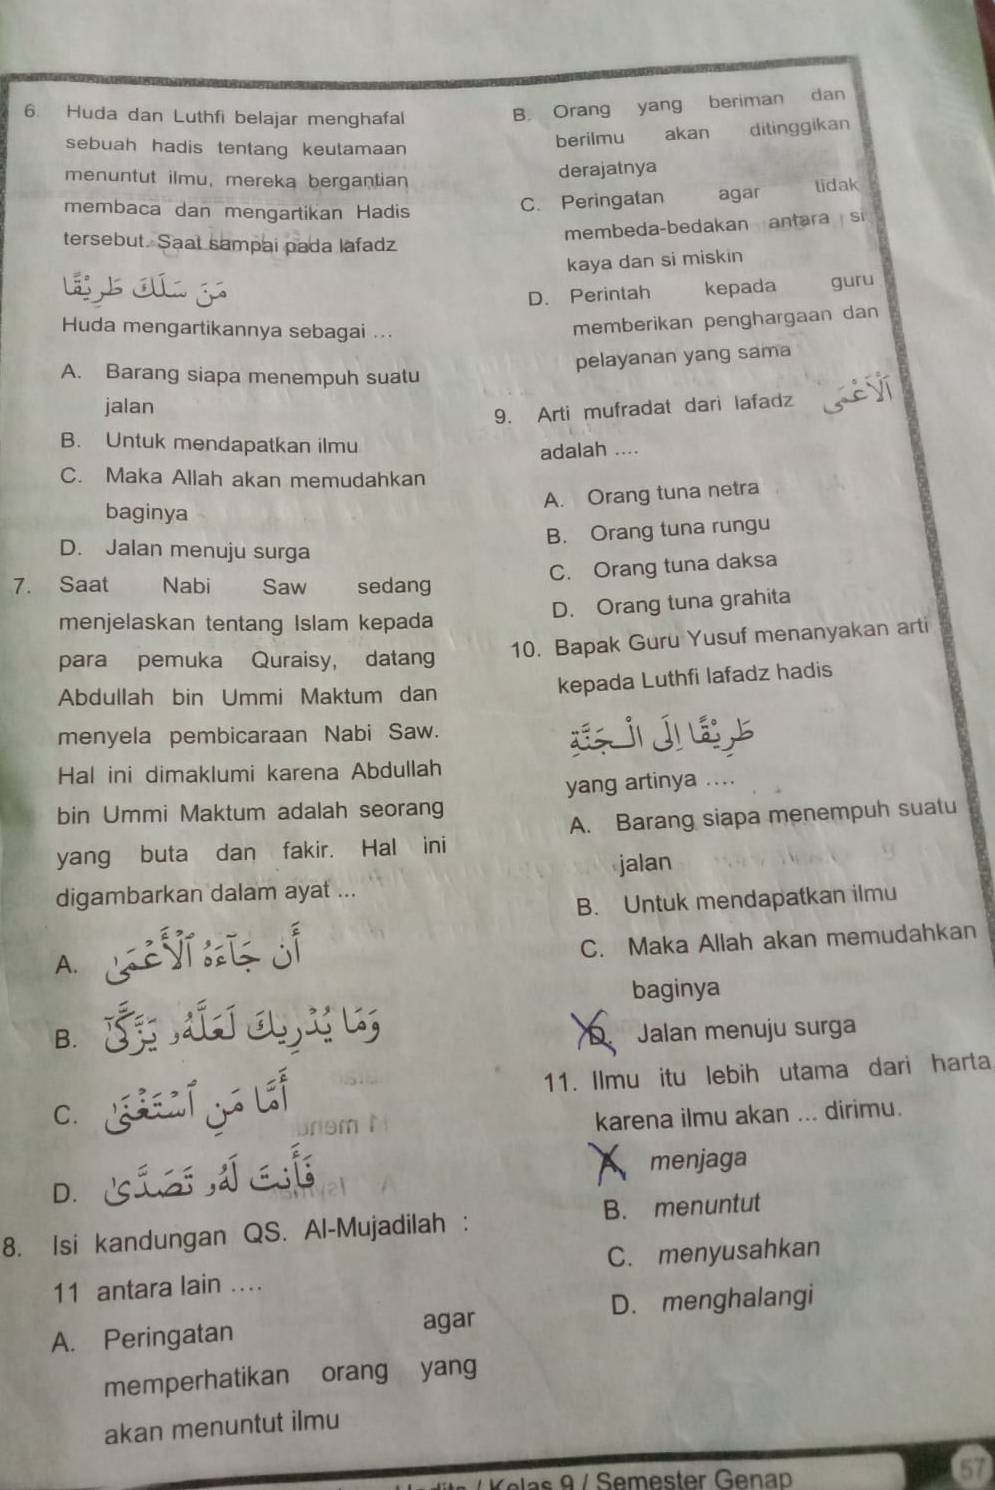 6. Huda dan Luthfi belajar menghafal
sebuah hadis tentang keutamaan
menuntut ilmu, mereka bergantian
membaca dan mengartikan Hadis
tersebut. Saat sampai pada lafadz
مَنْ سَلَكَ طَرِيْقًا
Huda mengartikannya sebagai ...
A. Barang siapa menempuh suatu
jalan
B. Untuk mendapatkan ilmu
C. Maka Allah akan memudahkan
baginya
D. Jalan menuju surga
7. Saat Nabi Saw sedang
menjelaskan tentang Islam kepada
para pemuka Quraisy, datang
Abdullah bin Ummi Maktum dan
menyela pembicaraan Nabi Saw.
Hal ini dimaklumi karena Abdullah
bin Ummi Maktum adalah seorang
yang buta dan fakir. Hal ini
digambarkan dalam ayat ...
A. أَنْ جَآءَهُ الْأَعْمَىٰ
B. وَمَا يُدْرِيْكَ لَعَلَّهُ يَزَّكّٰىٓ
C. أَمَّا مَنِ اسْتَغْنَىٰ
D. فَأَنْتَ لَهُ تَصَدَّىٰ
8. Isi kandungan QS. Al-Mujadilah :
11 antara lain ....
A. Peringatan agar
memperhatikan orang yang
akan menuntut ilmu
B. Orang yang beriman dan
berilmu akan ditinggikan
derajatnya
C. Peringatan agar tidak
membeda-bedakan antara si
kaya dan si miskin
D. Perintah kepada guru
memberikan penghargaan dan
pelayanan yang sama
9. Arti mufradat dari lafadz الْأَعْمَى
adalah ....
A. Orang tuna netra
B. Orang tuna rungu
C. Orang tuna daksa
D. Orang tuna grahita
10. Bapak Guru Yusuf menanyakan arti
kepada Luthfi lafadz hadis
طَرِيْقًا إِلَى الْجَنَّةِ
yang artinya ....
A. Barang siapa menempuh suatu
jalan
B. Untuk mendapatkan ilmu
C. Maka Allah akan memudahkan
baginya
D. Jalan menuju surga
11. Ilmu itu lebih utama dari harta
karena ilmu akan ... dirimu.
A menjaga
B. menuntut
C. menyusahkan
D. menghalangi
/ Kelas 9 / Semester Genap
57